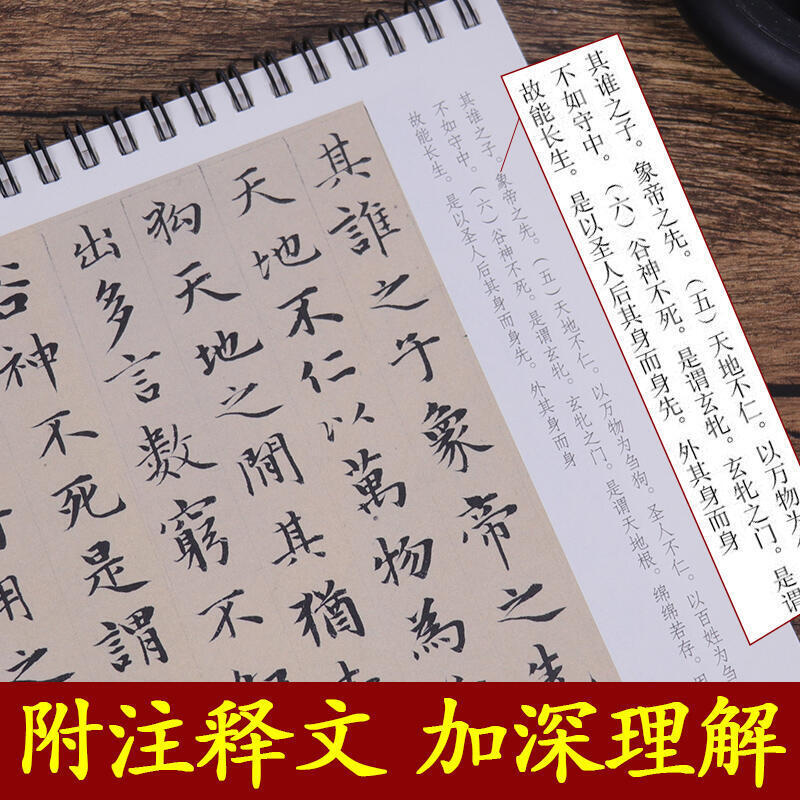 其谁之子。象帝之先。（五）天地不仁。以万物为
不如守中。（六）谷神不死。是谓玄牝。玄牝之门。是谓
故能长生。是以圣人后其身而身先。外其身而身
其谁之子。象帝之先。（五）天地不仁。以万物为刍狗。圣人不仁。以百姓为刍
不如守中。（六）谷神不死。是谓玄牝。玄牝之门。是谓天地根。绵绵若存。用
故能长生。是以圣人后其身而身先。外其身而身
其誰之子象帝之先
天地不仁以萬物為
狗天地之間其猶
出多言數窮不
谷神不死是謂
用之
附注释文 加深理解